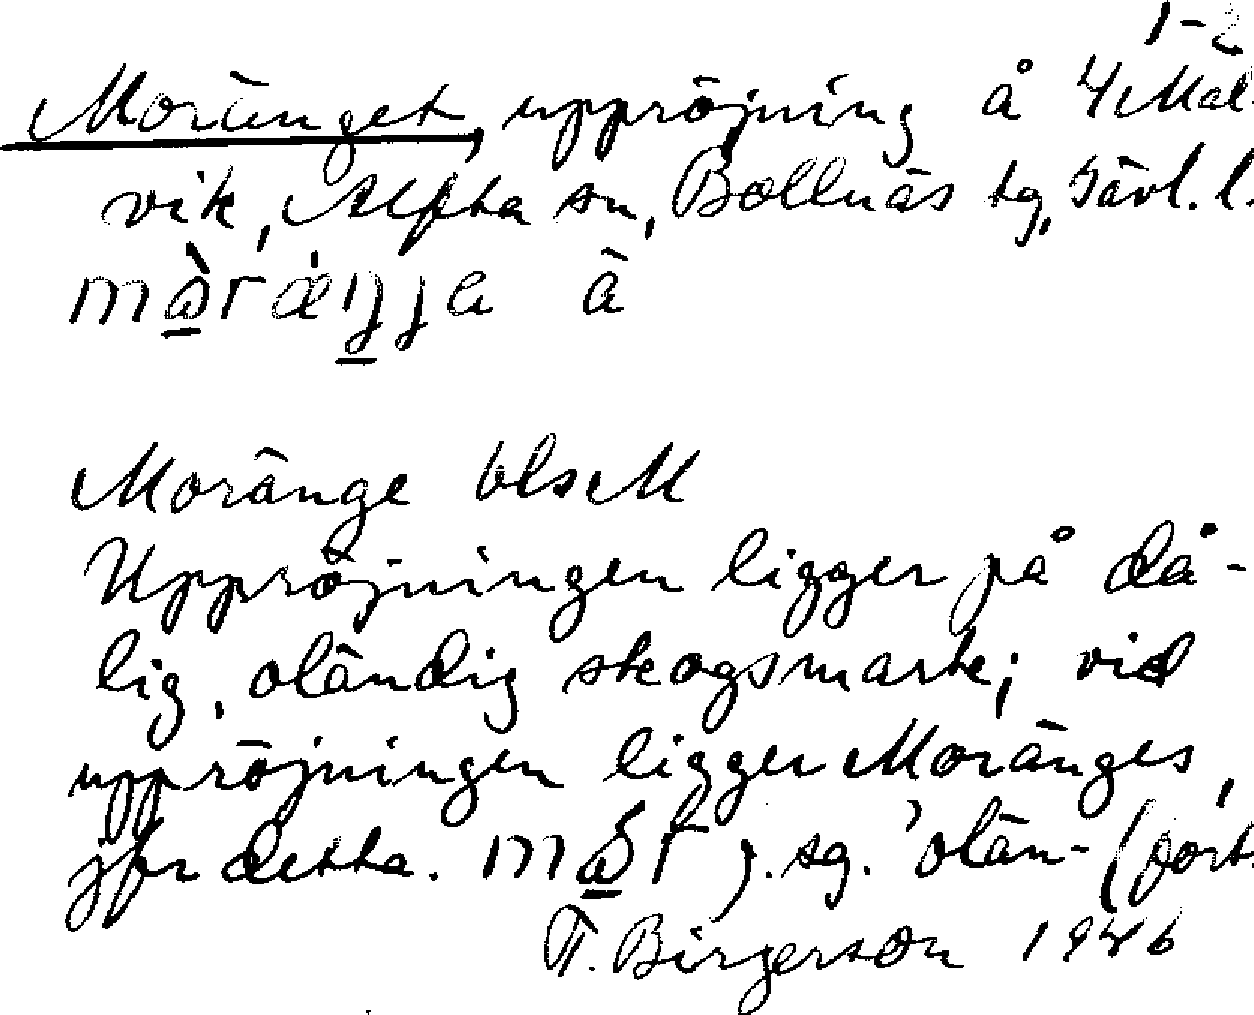 1-2
Moränget, uppröjning å 4 Mal-
vik, Alfta sn, Bollnäs tg, Gävl. l.
Moränge bls M
Uppröjningen ligger på då-
lig, oländig skogsmark; vid
uppröjningen ligger Moränges,
jfr detta. j. sg. 'olän- (forts.
T. Birgerson 1946